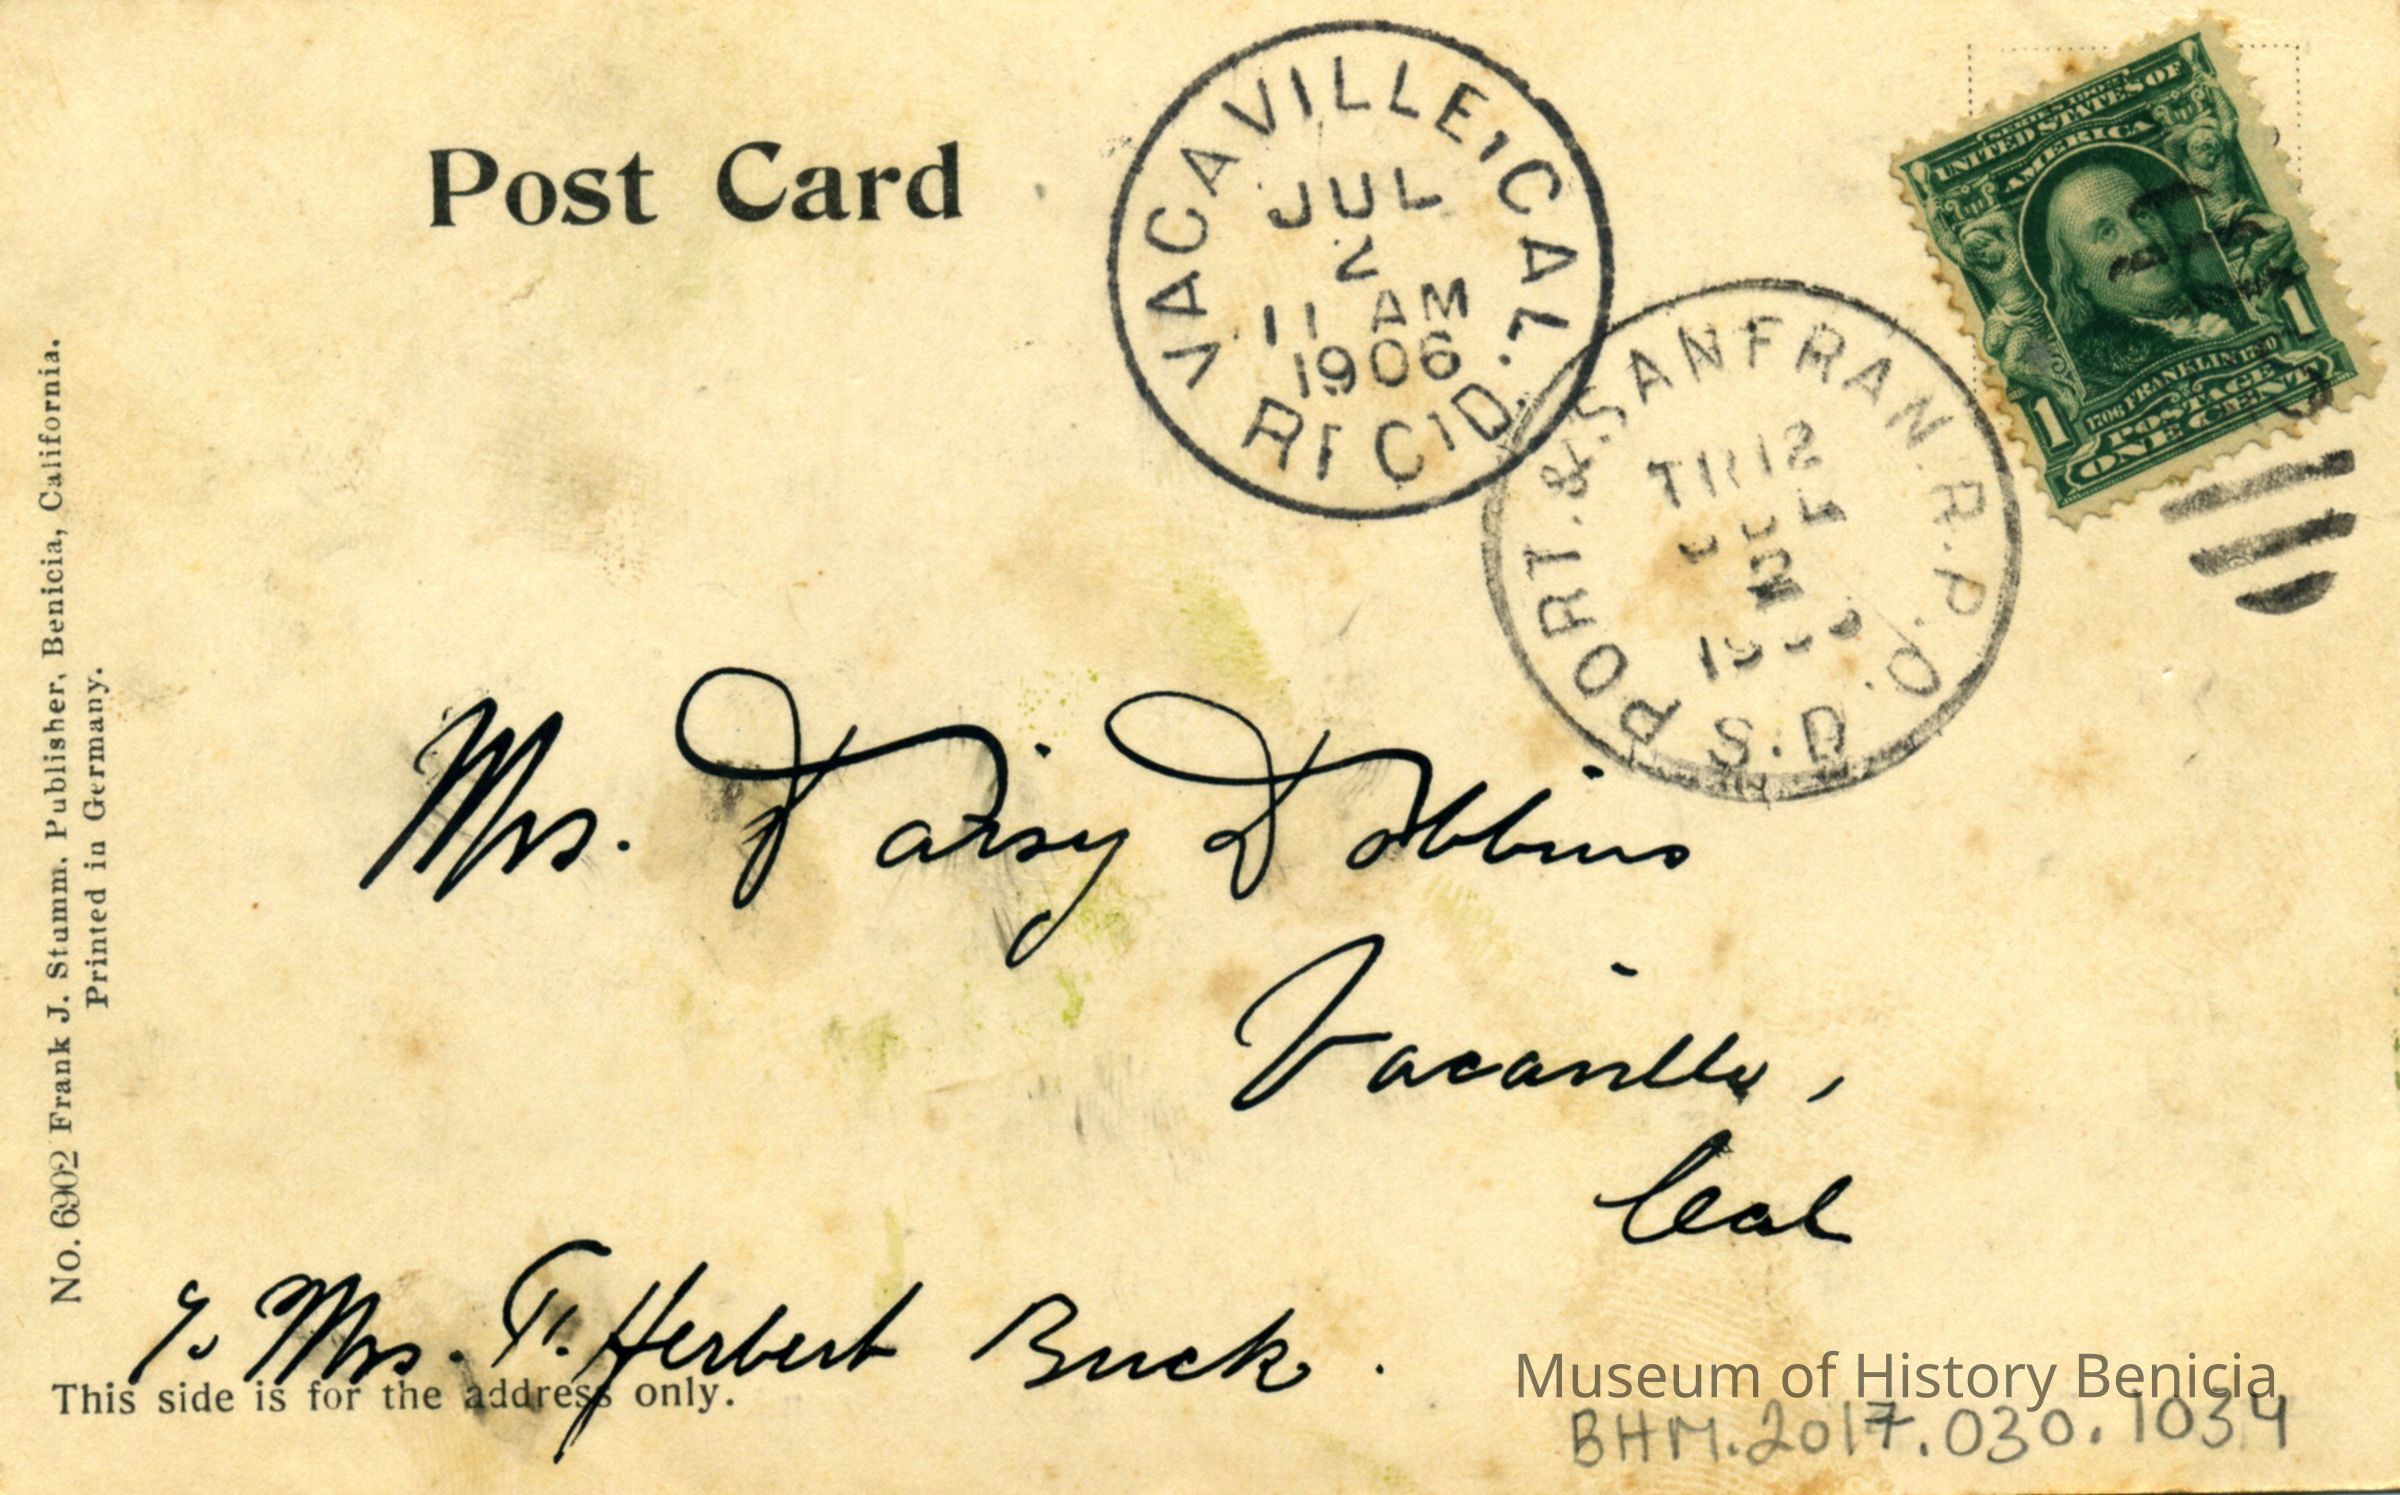 Post Card
VACAVILLE, CAL.
JUL
2
11 AM
1906
REC'D.
PORT. & SAN FRAN. R.P.O.
TR 12
S.D.
SERIES 1902
UNITED STATES OF
AMERICA
1706 FRANKLIN 1790
1 1
POSTAGE
ONE CENT
No. 6902 Frank J. Stumm. Publisher, Benicia, California.
Printed in Germany.
Mrs. Daisy Dobbins
Vacaville,
Cal
% Mrs. F. Herbert Buck.
This side is for the address only.
Museum of History Benicia
BHM.2017.030.1034